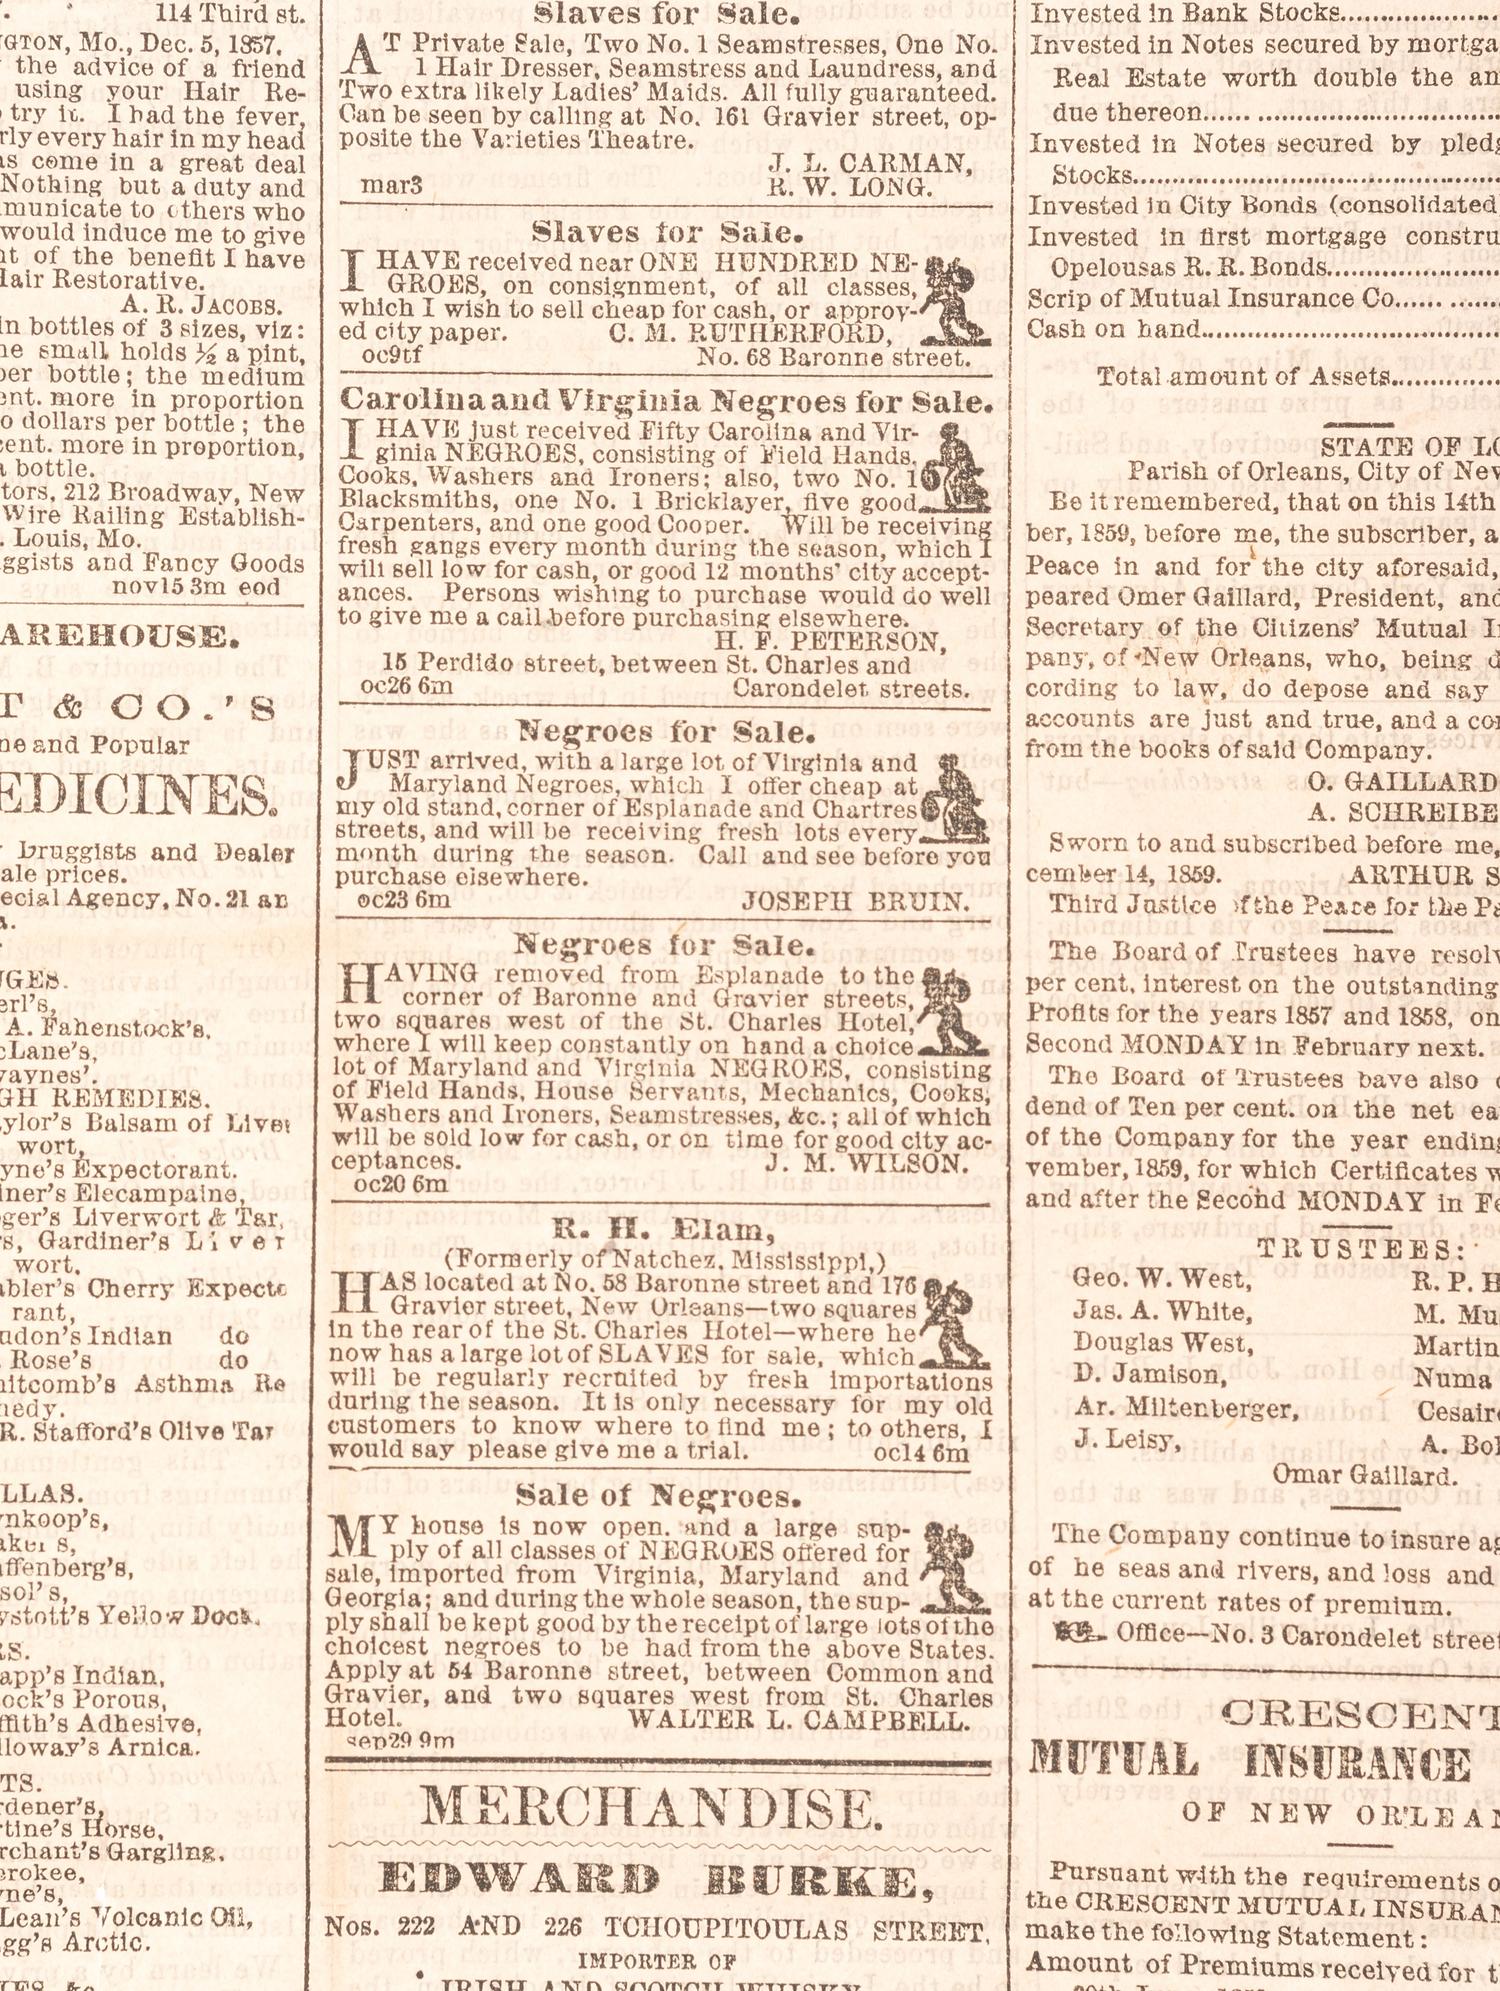 114 Third st.
NGTON, Mo., Dec. 5, 1857.
the advice of a friend
using your Hair Re-
try it. I had the fever,
rly every hair in my head
as come in a great deal
Nothing but a duty and
municate to others who
would induce me to give
nt of the benefit I have
Hair Restorative.
A. R. JACOBS.
in bottles of 3 sizes, viz:
he small holds ½ a pint,
per bottle; the medium
ent. more in proportion
o dollars per bottle; the
cent. more in proportion,
a bottle.
tors, 212 Broadway, New
Wire Railing Establish-
. Louis, Mo.
ggists and Fancy Goods
nov15 3m eod
AREHOUSE.
T & CO.'S
ne and Popular
EDICINES.
Druggists and Dealer
ale prices.
ecial Agency, No. 21 an
a.
UGES.
erl's,
A. Fahenstock's,
cLane's,
waynes'.
GH REMEDIES.
aylor's Balsam of Liver
wort,
yne's Expectorant.
iner's Elecampaine,
ger's Liverwort & Tar,
rs, Gardiner's Liver
wort.
abler's Cherry Expecto
rant,
ndon's Indian do
. Rose's do
hitcomb's Asthma Re
nedy.
R. Stafford's Olive Tar
LLAS.
ynkoop's,
aker s,
affenberg's,
sol's,
ystott's Yellow Dock.
RS.
app's Indian,
ock's Porous,
ffith's Adhesive,
lloway's Arnica.
TS.
rdener's,
rtine's Horse,
erchant's Gargling,
erokee,
yne's,
Lean's Volcanic Oil,
gg's Arctic.
Slaves for Sale.
AT Private Sale, Two No. 1 Seamstresses, One No.
1 Hair Dresser, Seamstress and Laundress, and
Two extra likely Ladies' Maids. All fully guaranteed.
Can be seen by calling at No. 161 Gravier street, op-
posite the Varieties Theatre.
J. L. CARMAN,
mar3 R. W. LONG.
Slaves for Sale.
I HAVE received near ONE HUNDRED NE-
GROES, on consignment, of all classes,
which I wish to sell cheap for cash, or approv-
ed city paper. C. M. RUTHERFORD,
oc9tf No. 68 Baronne street.
Carolina and Virginia Negroes for Sale.
I HAVE just received Fifty Carolina and Vir-
ginia NEGROES, consisting of Field Hands,
Cooks, Washers and Ironers; also, two No. 1
Blacksmiths, one No. 1 Bricklayer, five good
Carpenters, and one good Cooper. Will be receiving
fresh gangs every month during the season, which I
will sell low for cash, or good 12 months' city accept-
ances. Persons wishing to purchase would do well
to give me a call before purchasing elsewhere.
H. F. PETERSON,
15 Perdido street, between St. Charles and
oc26 6m Carondelet streets.
Negroes for Sale.
JUST arrived, with a large lot of Virginia and
Maryland Negroes, which I offer cheap at
my old stand, corner of Esplanade and Chartres
streets, and will be receiving fresh lots every
month during the season. Call and see before you
purchase elsewhere.
oc23 6m JOSEPH BRUIN.
Negroes for Sale.
HAVING removed from Esplanade to the
corner of Baronne and Gravier streets,
two squares west of the St. Charles Hotel,
where I will keep constantly on hand a choice
lot of Maryland and Virginia NEGROES, consisting
of Field Hands, House Servants, Mechanics, Cooks,
Washers and Ironers, Seamstresses, &c.; all of which
will be sold low for cash, or on time for good city ac-
ceptances. J. M. WILSON.
oc20 6m
R. H. Elam,
(Formerly of Natchez, Mississippi,)
HAS located at No. 58 Baronne street and 176
Gravier street, New Orleans—two squares
in the rear of the St. Charles Hotel—where he
now has a large lot of SLAVES for sale, which
will be regularly recruited by fresh importations
during the season. It is only necessary for my old
customers to know where to find me; to others, I
would say please give me a trial. oc14 6m
Sale of Negroes.
MY house is now open, and a large sup-
ply of all classes of NEGROES offered for
sale, imported from Virginia, Maryland and
Georgia; and during the whole season, the sup-
ply shall be kept good by the receipt of large lots of the
choicest negroes to be had from the above States.
Apply at 54 Baronne street, between Common and
Gravier, and two squares west from St. Charles
Hotel. WALTER L. CAMPBELL.
sep29 9m
MERCHANDISE.
EDWARD BURKE,
Nos. 222 AND 226 TCHOUPITOULAS STREET,
IMPORTER OF
IRISH AND SCOTCH WHISKY
Invested in Bank Stocks
Invested in Notes secured by mortga
Real Estate worth double the am
due thereon
Invested in Notes secured by pledg
Stocks
Invested in City Bonds (consolidated
Invested in first mortgage constru
Opelousas R. R. Bonds
Scrip of Mutual Insurance Co
Cash on hand
Total amount of Assets
STATE OF LO
Parish of Orleans, City of New
Be it remembered, that on this 14th
ber, 1859, before me, the subscriber, a
Peace in and for the city aforesaid,
peared Omer Gaillard, President, and
Secretary of the Citizens' Mutual I
pany, of New Orleans, who, being d
cording to law, do depose and say
accounts are just and true, and a cor
from the books of said Company.
O. GAILLARD
A. SCHREIBE
Sworn to and subscribed before me,
cember 14, 1859. ARTHUR S
Third Justice of the Peace for the Pa
The Board of Trustees have resolv
per cent, interest on the outstanding
Profits for the years 1857 and 1858, on
Second MONDAY in February next.
The Board of Trustees have also d
dend of Ten per cent. on the net ea
of the Company for the year ending
vember, 1859, for which Certificates w
and after the Second MONDAY in Fe
TRUSTEES:
Geo. W. West, R. P. H
Jas. A. White, M. Mu
Douglas West, Martin
D. Jamison, Numa
Ar. Miltenberger, Cesair
J. Leisy, A. Bol
Omar Gaillard.
The Company continue to insure ag
of he seas and rivers, and loss and
at the current rates of premium.
Office—No. 3 Carondelet street
CRESCENT
MUTUAL INSURANCE
OF NEW ORLEAN
Pursuant with the requirements o
the CRESCENT MUTUAL INSURAN
make the following Statement:
Amount of Premiums received for t